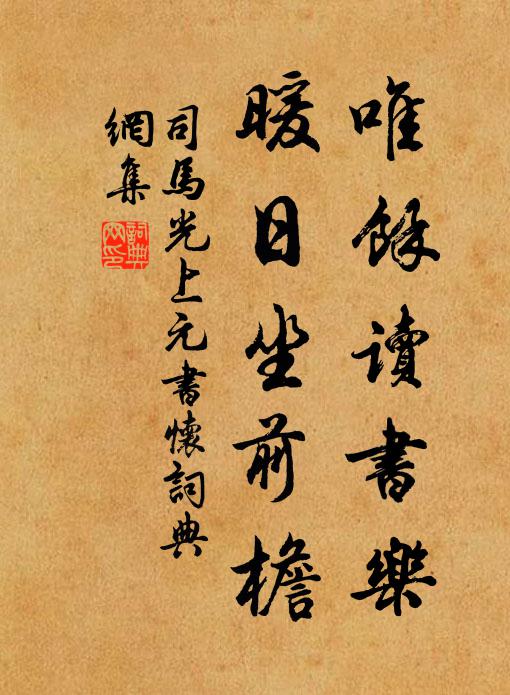 唯餘讀書樂
暖日坐前檐
司馬光上元書懷詞典
網集
詞典
网印